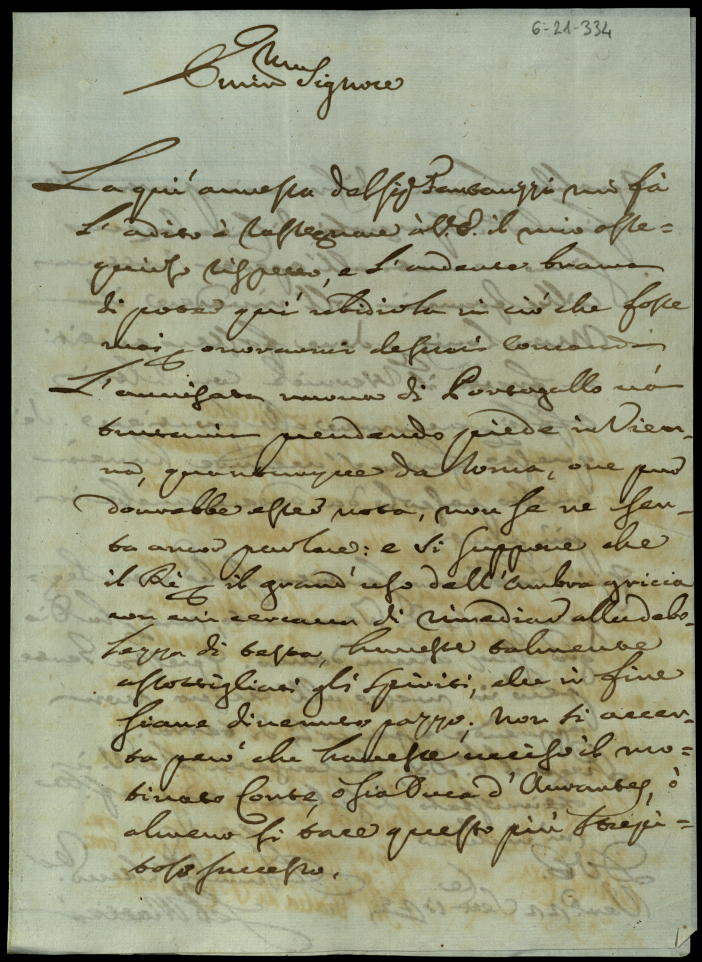 6-21-334
mio Signore
La qui annessa del Sig.r mi fà
l'adito à rassegnare à V.S. il mio osse=
quioso rispetto, e l'ardente brama
di poter qui ubidirla in ciò che fosse
mai onorarmi de suoi comandi
L'avvisata nuova di Portogallo và
tuttavia prendendo piede in Vien-
na, quantunque da Roma, ove più
dovrebbe esser nota, non se ne sen-
ta ancor parlare: e si suppone che
il Rè il grand'uso dell'ambra griccia
con cui cercava di rimediar alla debo-
lezza di testa, havesse talmente
assottigliati gli spiriti, che in fine
siane divenuto pazzo; non si accer-
ta però che havesse ucciso il no-
minato Conte, ò sia Duca d'Aurantes, ò
almeno si tace questo più strepi-
toso successo.
1